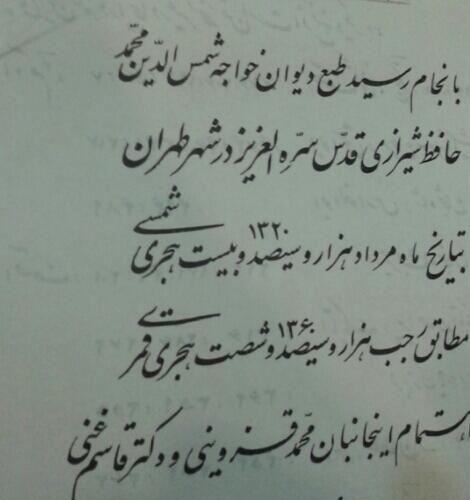 بانجام رسید طبع دیوان خواجه شمس الدّین محمّد
حافظ شیرازی قدّس سرّه العزیز در شهر طهران
بتاریخ ماه مرداد هزار و سیصد و بیست ۱۳۲۰ هجری شمسی
مطابق رجب هزار و سیصد و شصت ۱۳۶۰ هجری قمری
باهتمام اینجانبان محمّد قزوینی و دکتر قاسم غنی